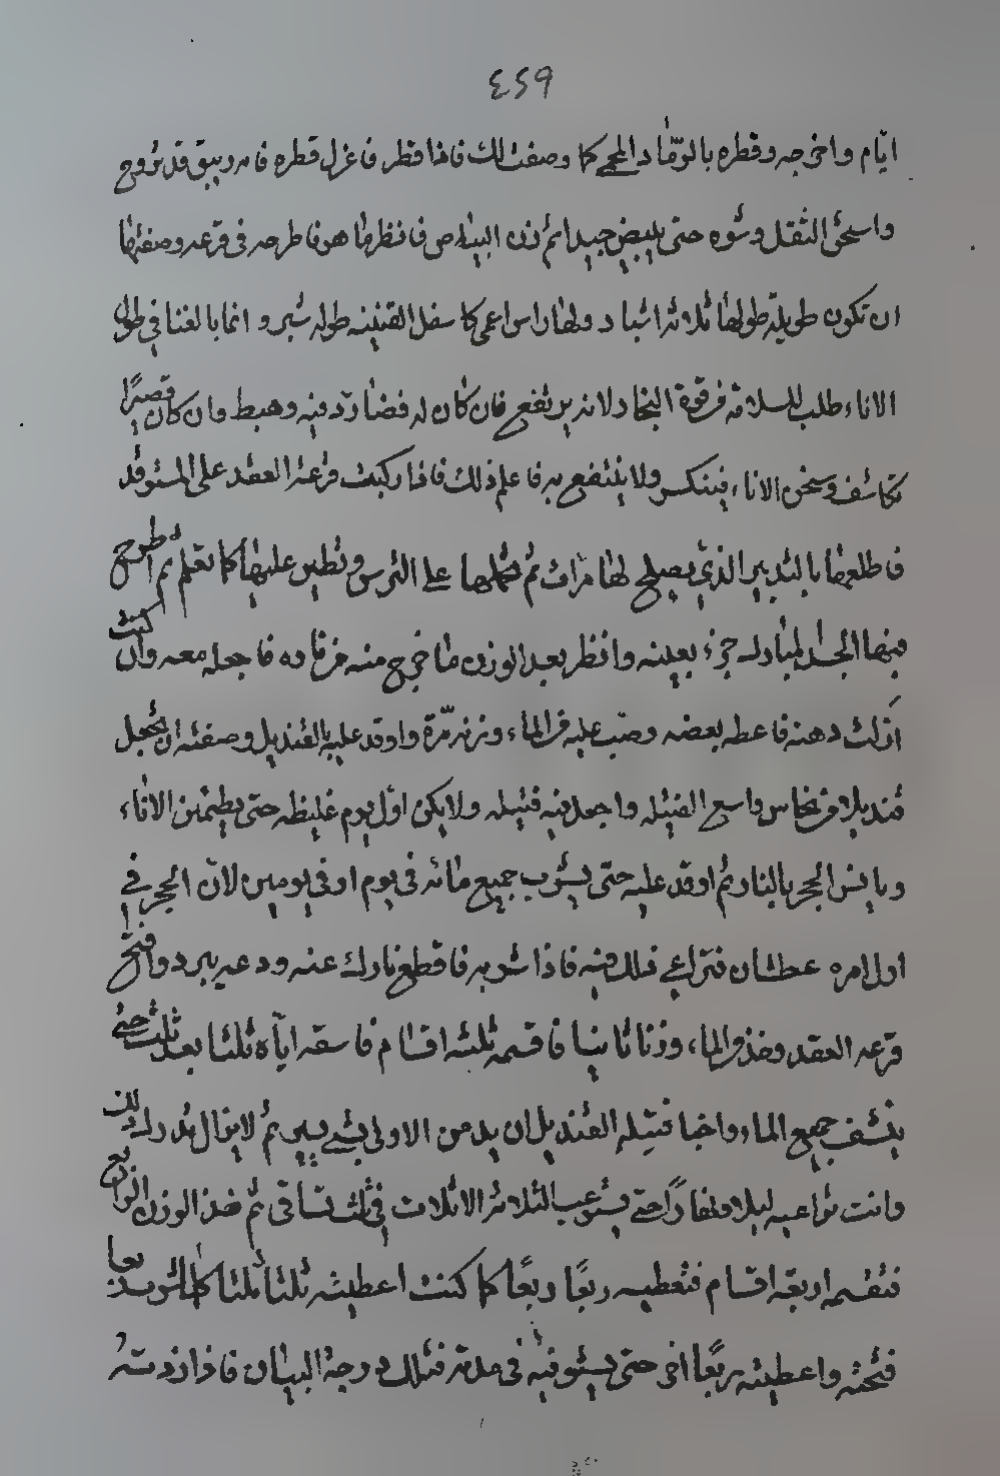 ٤٥٩
ايّام واخرجه وقطره بالرّماد المحجى كما وصفت لك فاذا قطر فاعزل قطره فانه زيبق قد تروح
واسحق الثفل وشوه حتى يبيض جيدا ثم زن البياض فانظر ما هو فاطرحه فى قرعه وصفتها
ان تكون طويلة طولها ثلاثه اشبار ولها راس اعمى كاسفل القنينه طوله شبر وانما بالغنا في طول
الاناء طلب للسلامه من قوة البخار لانه يرتفع فان كان له فضا ردّ فيه وهبط وان كان قصيرًا
تكاشف وسخن الاناء فينكسر ولا ينتفع به فاعلم ذلك فاذا ركبت قرعة العقد على المستوقد
فاطلعها بالتدبير الذي يصلح لها مرات ثم تحملها على الترس وتطين عليها كما تعلم ثم اطرح
فيها الجسد المبارك جزء بعينه وانظر بعد الوزن ما خرج منه من ماده فاجعله معه وان كنت
انزلت دهنه فاعطه بعضه وصب عليه من الماء وزنه مرّة واوقد عليه بالقنديل وصفته ان تجعل
قنديلا من نحاس واسع الفتيله واجعل فيه فتيله ولا يكن اول يوم غليظه حتى يطمئن الاناء
ويانس الحجر بالنار ثم اوقد عليه حتى يشرب جميع مائه فى يوم او فى يومين لان الحجر في
اول امره عطشان فتراعي ذلك فيه فاذا شربه فاقطع نارك عنه ودعه يبرد وافتح
قرعه العقد وخذ من الماء وزنا ثانيا فاقسمه ثلثه اقسام فاسقه اياه ثلثا بعد ثلث حتى
ينشف جميع الماء واخبا فتيلة القنديل ان يد من الاولى بشي يسير ثم لا يزال بذلك
وانت تراعيه ليلا ونهارًا حتى يستوعب الثلاثة الاثلاث في ثلث تساقى ثم خذ الوزن الرابع
فتقسمه اربعة اقسام فتعطيه ربعًا ربعًا كما كنت اعطيته ثلثا ثلثا كلما شرب ربعا
فتحته واعطيته ربعًا اخر حتى يستوفيه فى مدته فتلك درجة البياض فاذا زدته